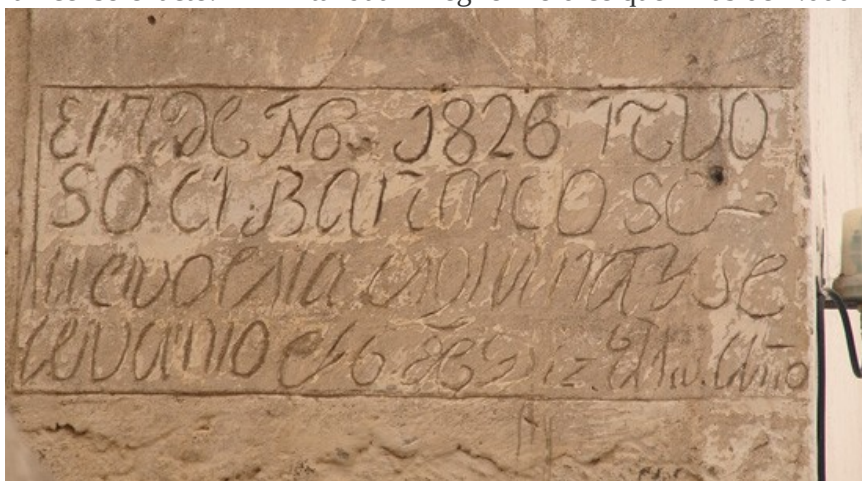 El 7 De No. 1826 TUVO
SO el Baranco Se
llevo esta esquina y se
levanto el 6 de Diz. Año